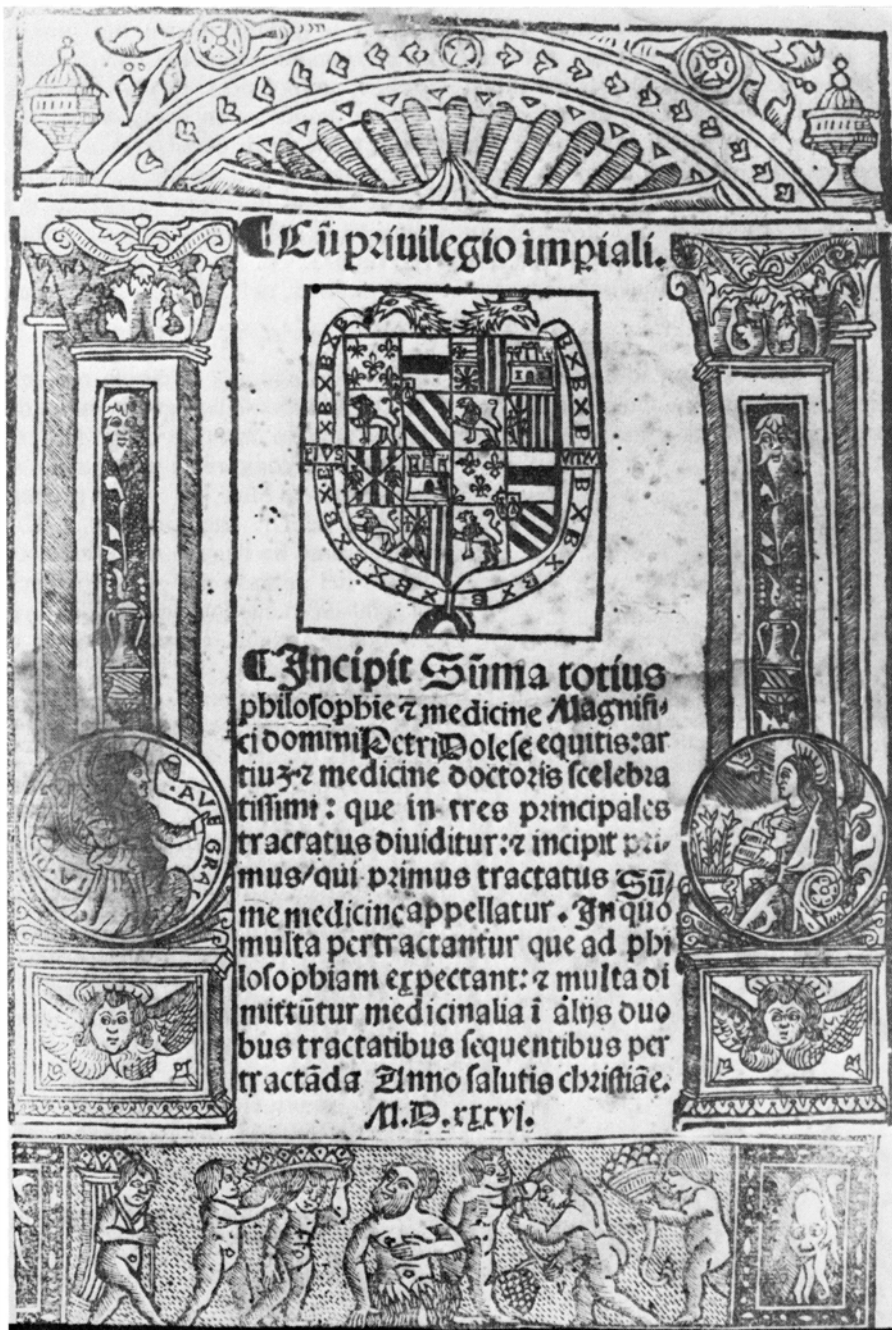 ¶ Cū priuilegio impiali.
BXBXBXB
BXBXP
EIVS
VITAM
BXBXBXBXBXBXB
¶ Incipit Sūma totius
philosophie ⁊ medicine Magnifi-
ci domini Petri Dolese equitis: ar
tiuꝫ ⁊ medicine doctoris scelebra
tissimi: que in tres principales
tractatus diuiditur: ⁊ incipit pri-
mus/qui primus tractatus Sū-
me medicine appellatur. In quo
multa pertractantur que ad phi
losophiam expectant: ⁊ multa di
mittūtur medicinalia ī alijs duo
bus tractatibus sequentibus per
tractāda Anno salutis christiāe.
M.D.xxxvj.
AVE GRA
IA